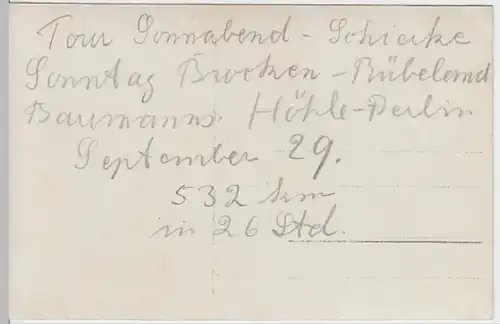 Tour Sonnabend - Schierke
Sonntag Brocken - Rübeland
Baumanns. Höhle - Berlin
September 29.
532 km
in 26 Std.